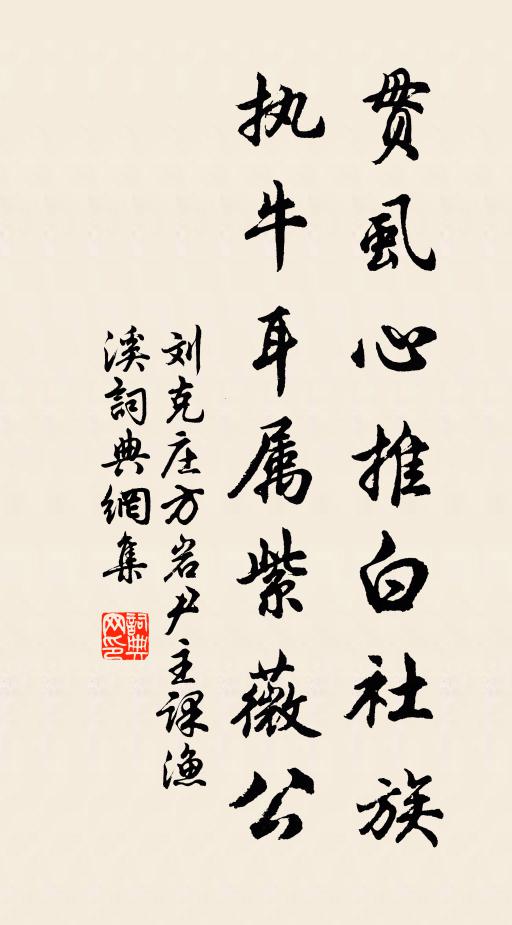 贯虱心推白社族
执牛耳属紫薇公
刘克庄方岩尹主课渔
溪詞典網集
詞典网印